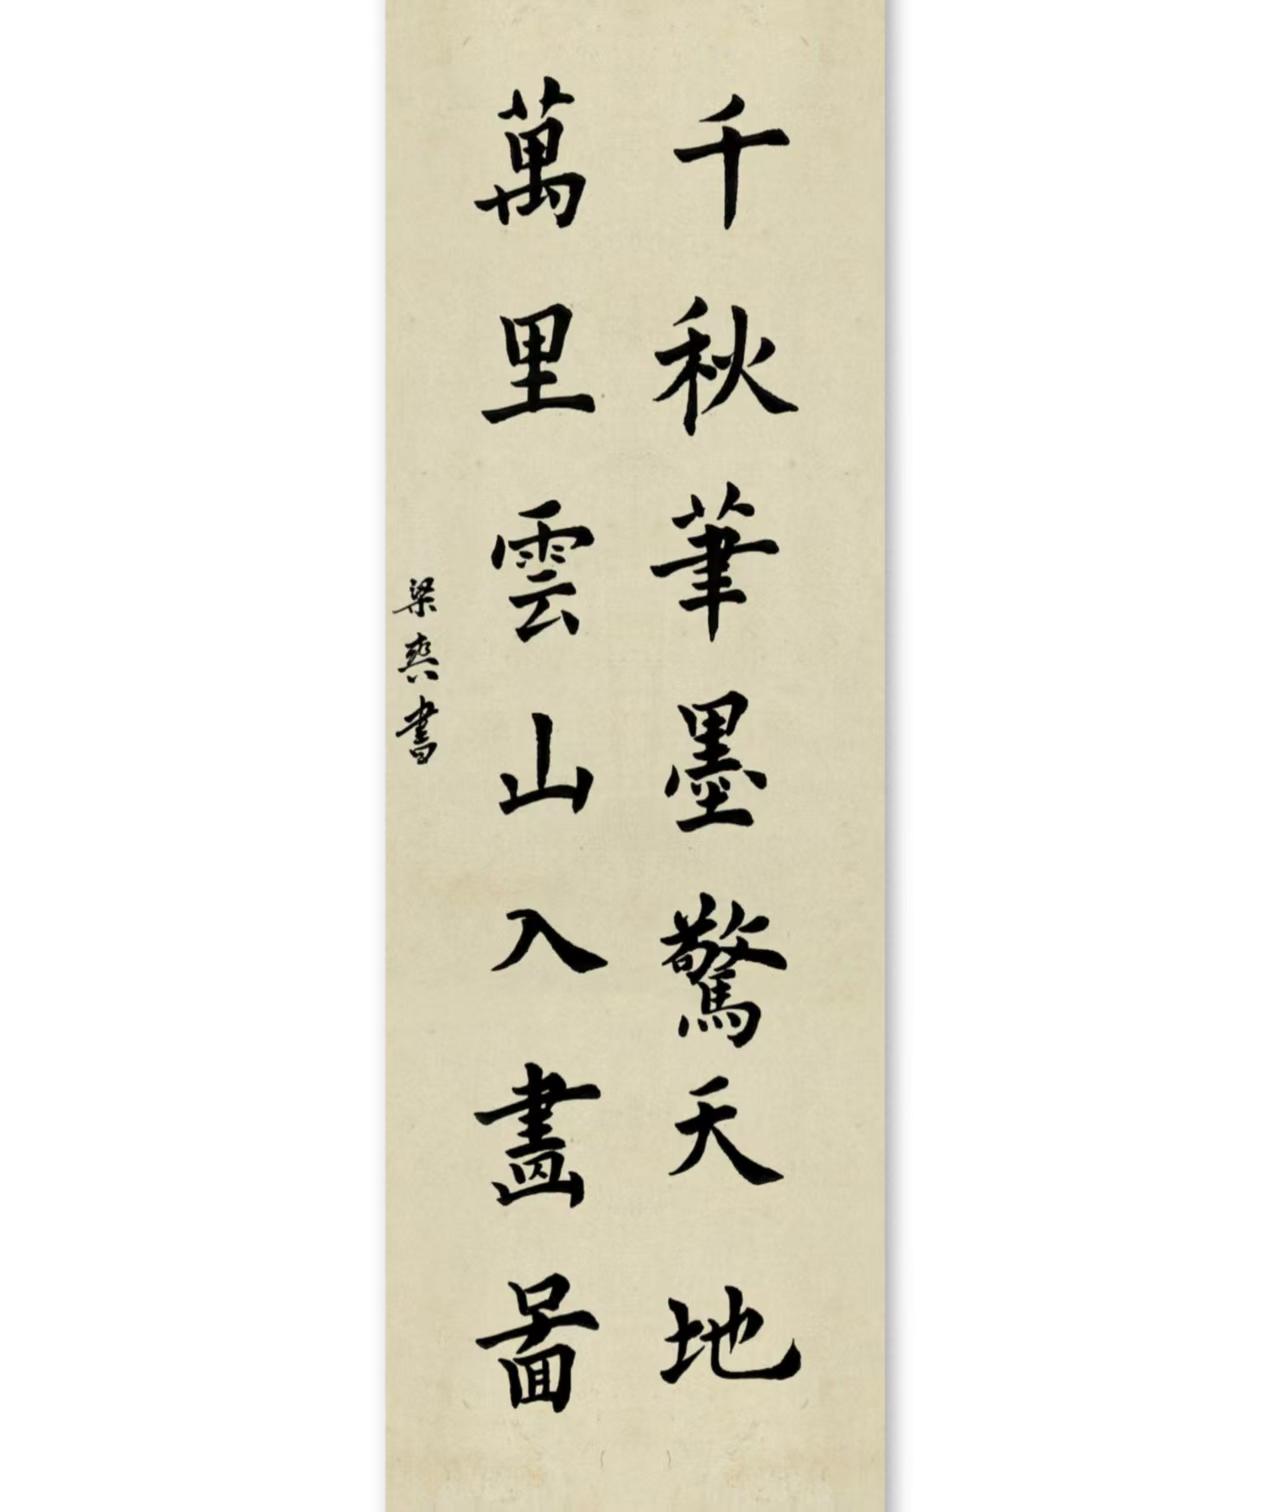 千秋筆墨驚天地
萬里雲山入畫啚
梁書